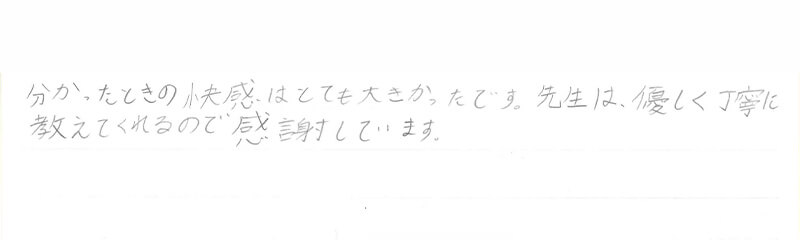 分かったときの快感はとても大きかったです。先生は、優しく丁寧に
教えてくれるので感謝しています。